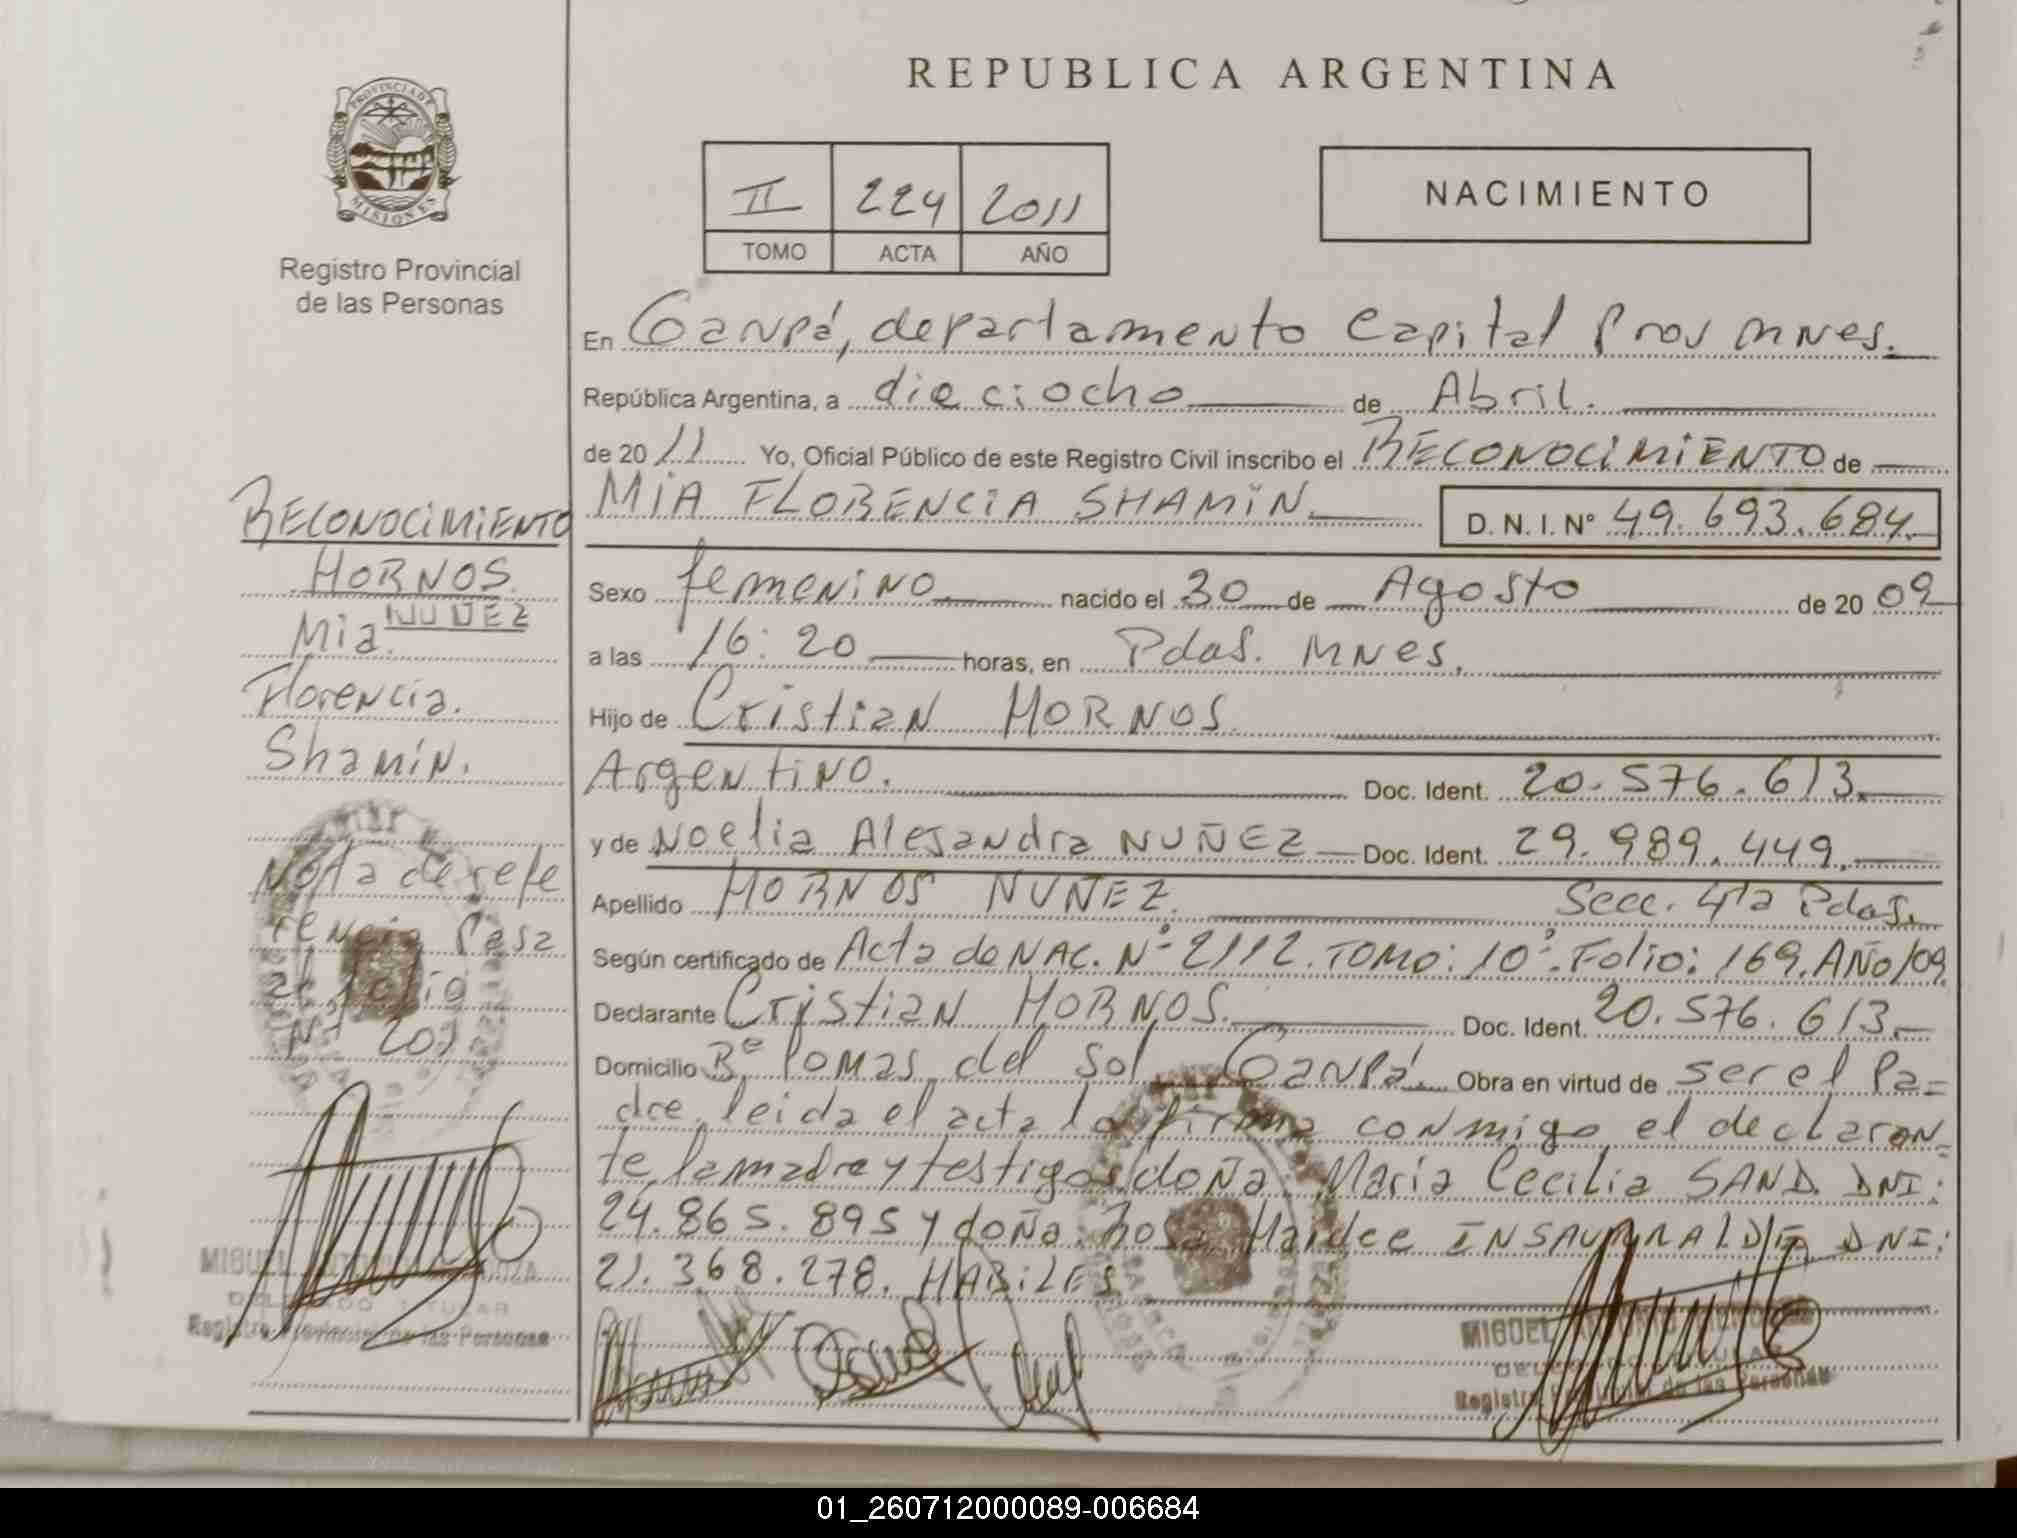 REPUBLICA ARGENTINA
PROVINCIA DE
MISIONES
Registro Provincial
de las Personas
II 224 2011
TOMO ACTA AÑO
NACIMIENTO
En Garupá, departamento Capital Prov Mnes.
República Argentina, a dieciocho de Abril.
de 2011 Yo, Oficial Público de este Registro Civil inscribo el RECONOCIMIENTO de
MIA FLORENCIA SHAMIN. D. N. I. Nº 49.693.684.
Sexo femenino nacido el 30 de Agosto de 2009
a las 16:20 horas, en Pdas. Mnes.
Hijo de Cristian HORNOS.
Argentino. Doc. Ident. 20.576.613.
y de Noelia Alejandra NUÑEZ Doc. Ident. 29.989.449.
Apellido HORNOS NUÑEZ. Secc. 4ta Pdas.
Según certificado de Acta de NAC. Nº 2112. TOMO: 10º. Folio: 169. AÑO/09
Declarante Cristian HORNOS. Doc. Ident. 20.576.613.
Domicilio Bº Lomas del Sol Garupá. Obra en virtud de ser el Pa=
dre, leida el acta la firma conmigo el declaran=
te, la madre y testigos doña: Maria Cecilia SAND. DNI:
24.865.895 y doña: Rosa Haidee INSAURRALDE, DNI:
21.368.278. HABILES
RECONOCIMIENTO
HORNOS
NUÑEZ
Mia.
Florencia.
Shamin.
Nota de refe
rencia Pasa
al folio
Nº 201
MIGUEL
DELEGADO TITULAR
Registro Provincial de las Personas
MIGUEL
DELEGADO TITULAR
Registro Provincial de las Personas
01_260712000089-006684